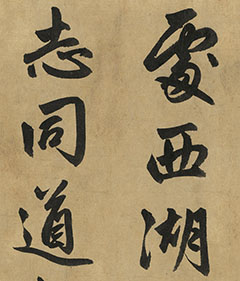 處西湖
志同道